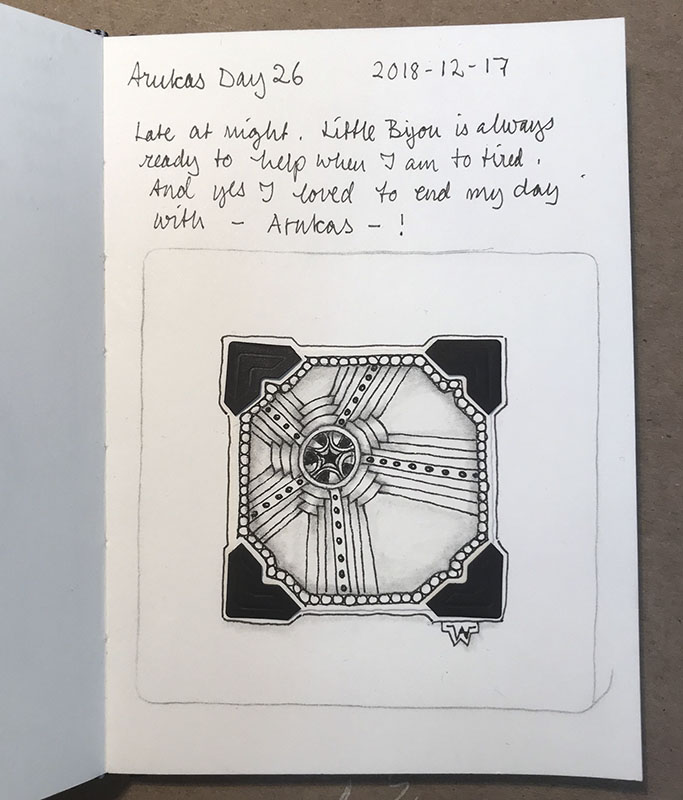 Arukas Day 26 2018-12-17
Late at night. Little Bijou is always
ready to help when I am to tired.
And yes I loved to end my day
with - Arukas - !
W